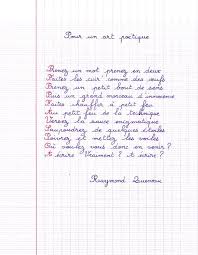 Pour un art poétique
Prenez un mot prenez en deux
Faites les cuir' comme des œufs
Prenez un petit bout de sens
Puis un grand morceau d'innocence
Faites chauffer à petit feu
Au petit feu de la technique
Versez la sauce énigmatique
Saupoudrez de quelques étoiles
Poivrez et mettez les voiles
Où voulez vous donc en venir ?
A écrire Vraiment ? A écrire ?
Raymond Queneau